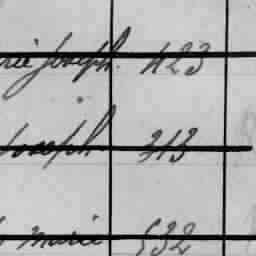 rie Joseph. 423
Joseph 313
marie 532